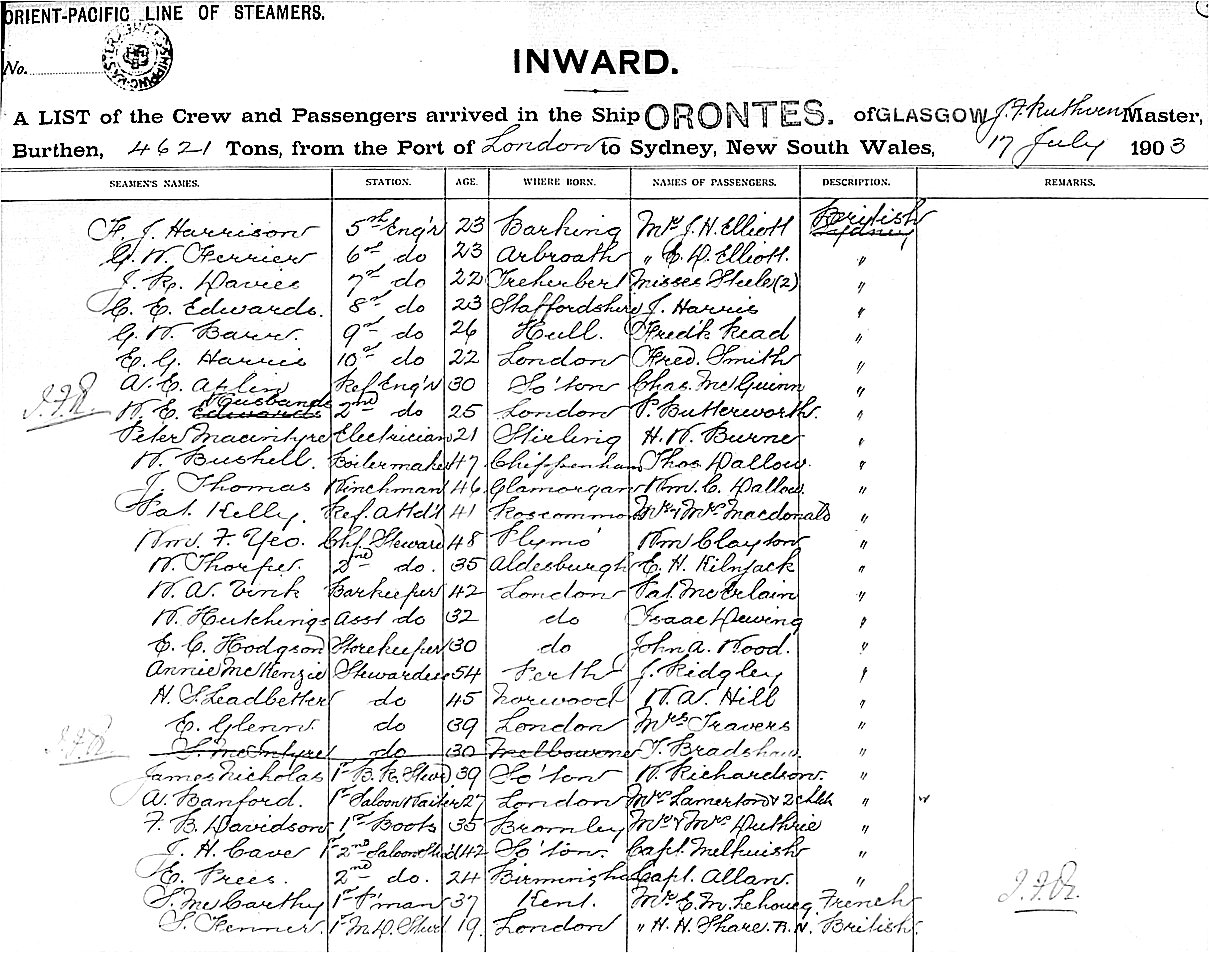 ORIENT-PACIFIC LINE OF STEAMERS.
No.
INWARD.
A LIST of the Crew and Passengers arrived in the Ship ORONTES. of GLASGOW J. F. Ruthven Master,
Burthen, 4621 Tons, from the Port of London to Sydney, New South Wales, 17 July 1903
SEAMEN'S NAMES. STATION. AGE. WHERE BORN. NAMES OF PASSENGERS. DESCRIPTION. REMARKS.
F. J. Harrison 5th Eng'r 23 Barking Mr J. H. Elliott British Sydney
G. W. Ferrier 6th do 23 Arbroath " E. D. Elliott. "
J. R. Davies 7th do 22 Treherbert Misses Steele (2) "
C. E. Edwards. 8th do 23 Staffordshire J. Harris "
G. W. Barr. 9th do 26 Hull. Fredk Read "
E. G. Harris 10th do 22 London Fred. Smith "
A. E. Ref Eng'r 30 So'ton Chas. McGuinn "
J.F.R. W. E. Edwards Husbands 2nd do 25 London P. Butterworth. "
Peter Macintyre Electrician 21 Stirling H. W. Burne "
W. Bushell. Boilermaker 47 Chippenham Thos Dallow. "
J. Thomas Winchman 46 Glamorgan Wm. C. Dallow. "
Pat. Kelly. Ref. Att'd't 41 Roscommon Mr & Mrs Macdonald "
Wm. F. Yeo. Chf. Steward 48 Plymo' Wm Clayton "
W. Thorper. 2nd do. 35 Aldesburgh E. H. Kilnjack "
W. A. Vink Barkeeper 42 London Pat. McErlain "
W. Hutchings Asst do 32 do Isaac Dewing "
E. C. Hodgson Storekeeper 30 do John A. Wood. "
Annie McKenzie Stewardess 54 Perth J. Ridgley "
H. S. Leadbetter do 45 Norwood W. A. Hill "
E. Glenn do 39 London Mrs Travers "
J.F.R. S. McIntyre do 30 Melbourne T. Bradshaw. "
James Nicholas 1st B. R. Stew'd 39 So'ton W. Richardson. "
A. Banford. 1st Saloon Waiter 27 London Mrs Lamerton & 2 chldn "
F. B. Davidson 1st Boots 35 Bromley Mr & Mrs Duthrie "
J. H. Cave 1st 2nd Saloon Stw'd 42 So'ton. Capt. Melhuish "
E. Prees. 2nd do. 24 Birmingham Capt. Allan. "
S. McCarthy 1st P'man 37 Kent. Mr E. M. Lehoucq. French J.F.R.
S. Fenner. 1st M. D. Stwd 19. London " H. H. Share. R.N. British.